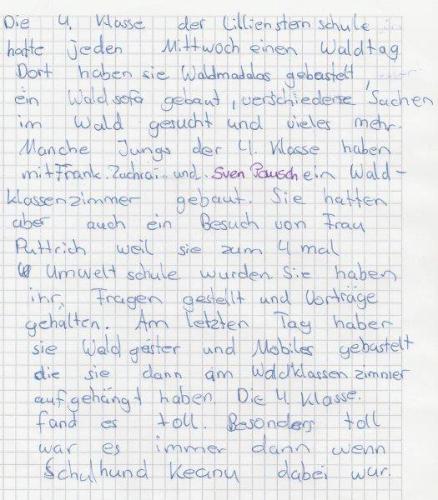 Die 4. Klasse der Lillienstern schule
hatte jeden Mittwoch einen Waldtag
Dort haben sie Waldmaddas gebastelt,
ein Waldsofa gebaut, verschiedene Sachen
im Wald gesucht und vieles mehr.
Manche Jungs der 4. Klasse haben
mit Frank Zachrai.. und. Sven Pausch ein Wald-
klassenzimmer gebaut. Sie hatten
aber auch ein Besuch von Frau
Puttrich weil sie zum 4 mal
Umwelt schule wurden. Sie haben
ihr, Fragen gestellt und Vorträge
gehalten. Am letzten Tag haber
sie Wald geister und Mobiles gebastelt
die sie dann am Waldklassen zimmer
aufgehängt haben. Die 4. Klasse.
fand es toll. Besonders toll
war es immer dann wenn
Schulhund Keanu dabei war.